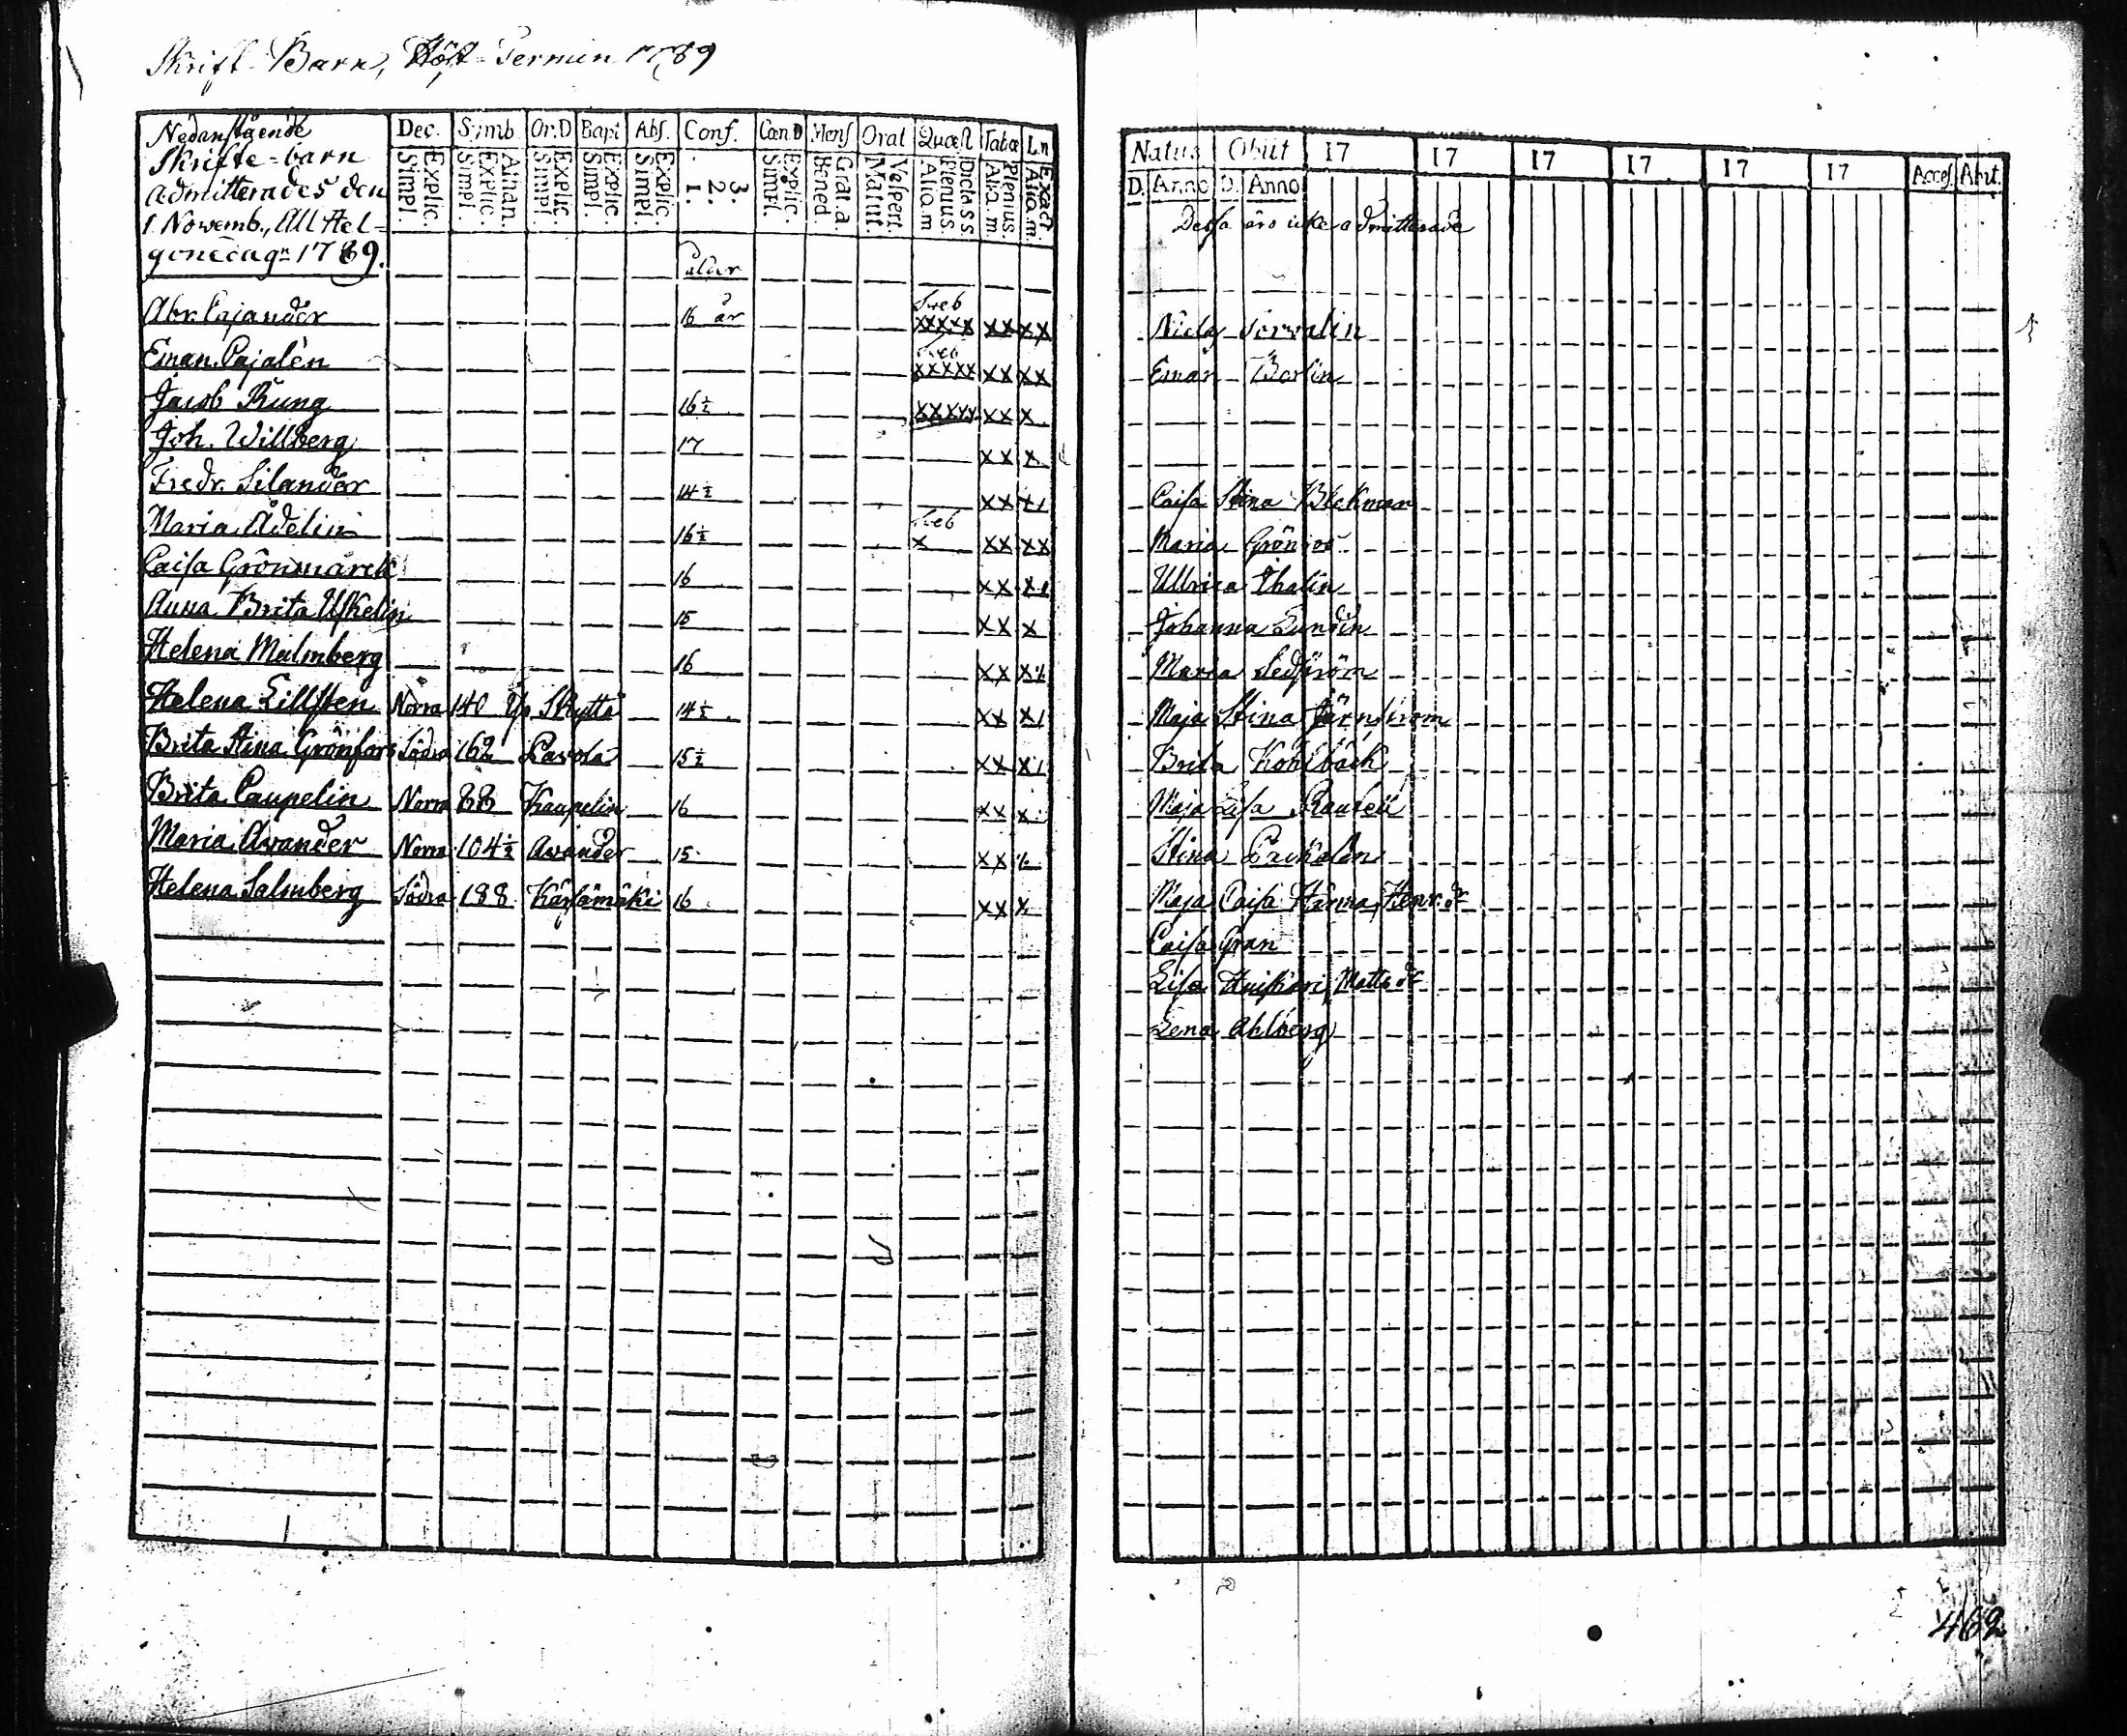 Skrift-Barn, Höst-Termin 1789
Nedanstående
Skrifte-barn
admitterades den
1. Novemb., All Hel-
1789.
Dec. Simb. Or.D Bapt Abs. Conf. Cœn.D Mens Orat Quæst Tabæ Ln
Explic. Simpl. Athan. Explic. Simpl. Explic. Simpl. Explic. Simpl. Explic. Simpl. 3. 2. 1. Explic. Simpl. Grat.a. Bened. Vespert. Matut. Dict.ss Plenius. Aliq.m Plenius. Aliq.m. Exact. Aliq.m.
ålder
Abr. Cajander 16 år Sveb xxxxx xx xx
Eman. Cajalén Sveb xxxxx xx xx
Jacob Rung 16½ xxxxx xx x
Joh. Willberg 17 xx x
Fredr. Silander 14½ xx x
Maria Ådelin 16½ Sveb x xx xx
Caisa Grönmarck 16 xx x
Anna Brita Uskelin 15 xx x
Helena Malmberg 16 xx x
Helena Lillsten Norra 140 Skyttä 14½ xx x
Brita Stina Grönfors Södra 162 Pavola 15½ xx x
Brita Caupelin Norra 88 Kaupelin 16 xx x
Maria Avander Norra 104½ Avander 15 xx x
Helena Salmberg Södra 188 Kärsämäki 16 xx x
Natus Obiit 17 17 17 17 17 17 Acces. Abiit.
D. Anno D. Anno
Dessa äro icke admitterade
Niclas Sorvalin
Eman Borlin
Caisa Stina Bäckman
Maria Grönroos
Ullrica Thalin
Johanna Sundin
Maria Sedström
Maja Stina Järnström
Brita Kohlbäck
Maja Lisa
Stina
Maja Caisa Henr. dr
Caisa Gran
Lisa Matts dr
Lena Ahlberg
462